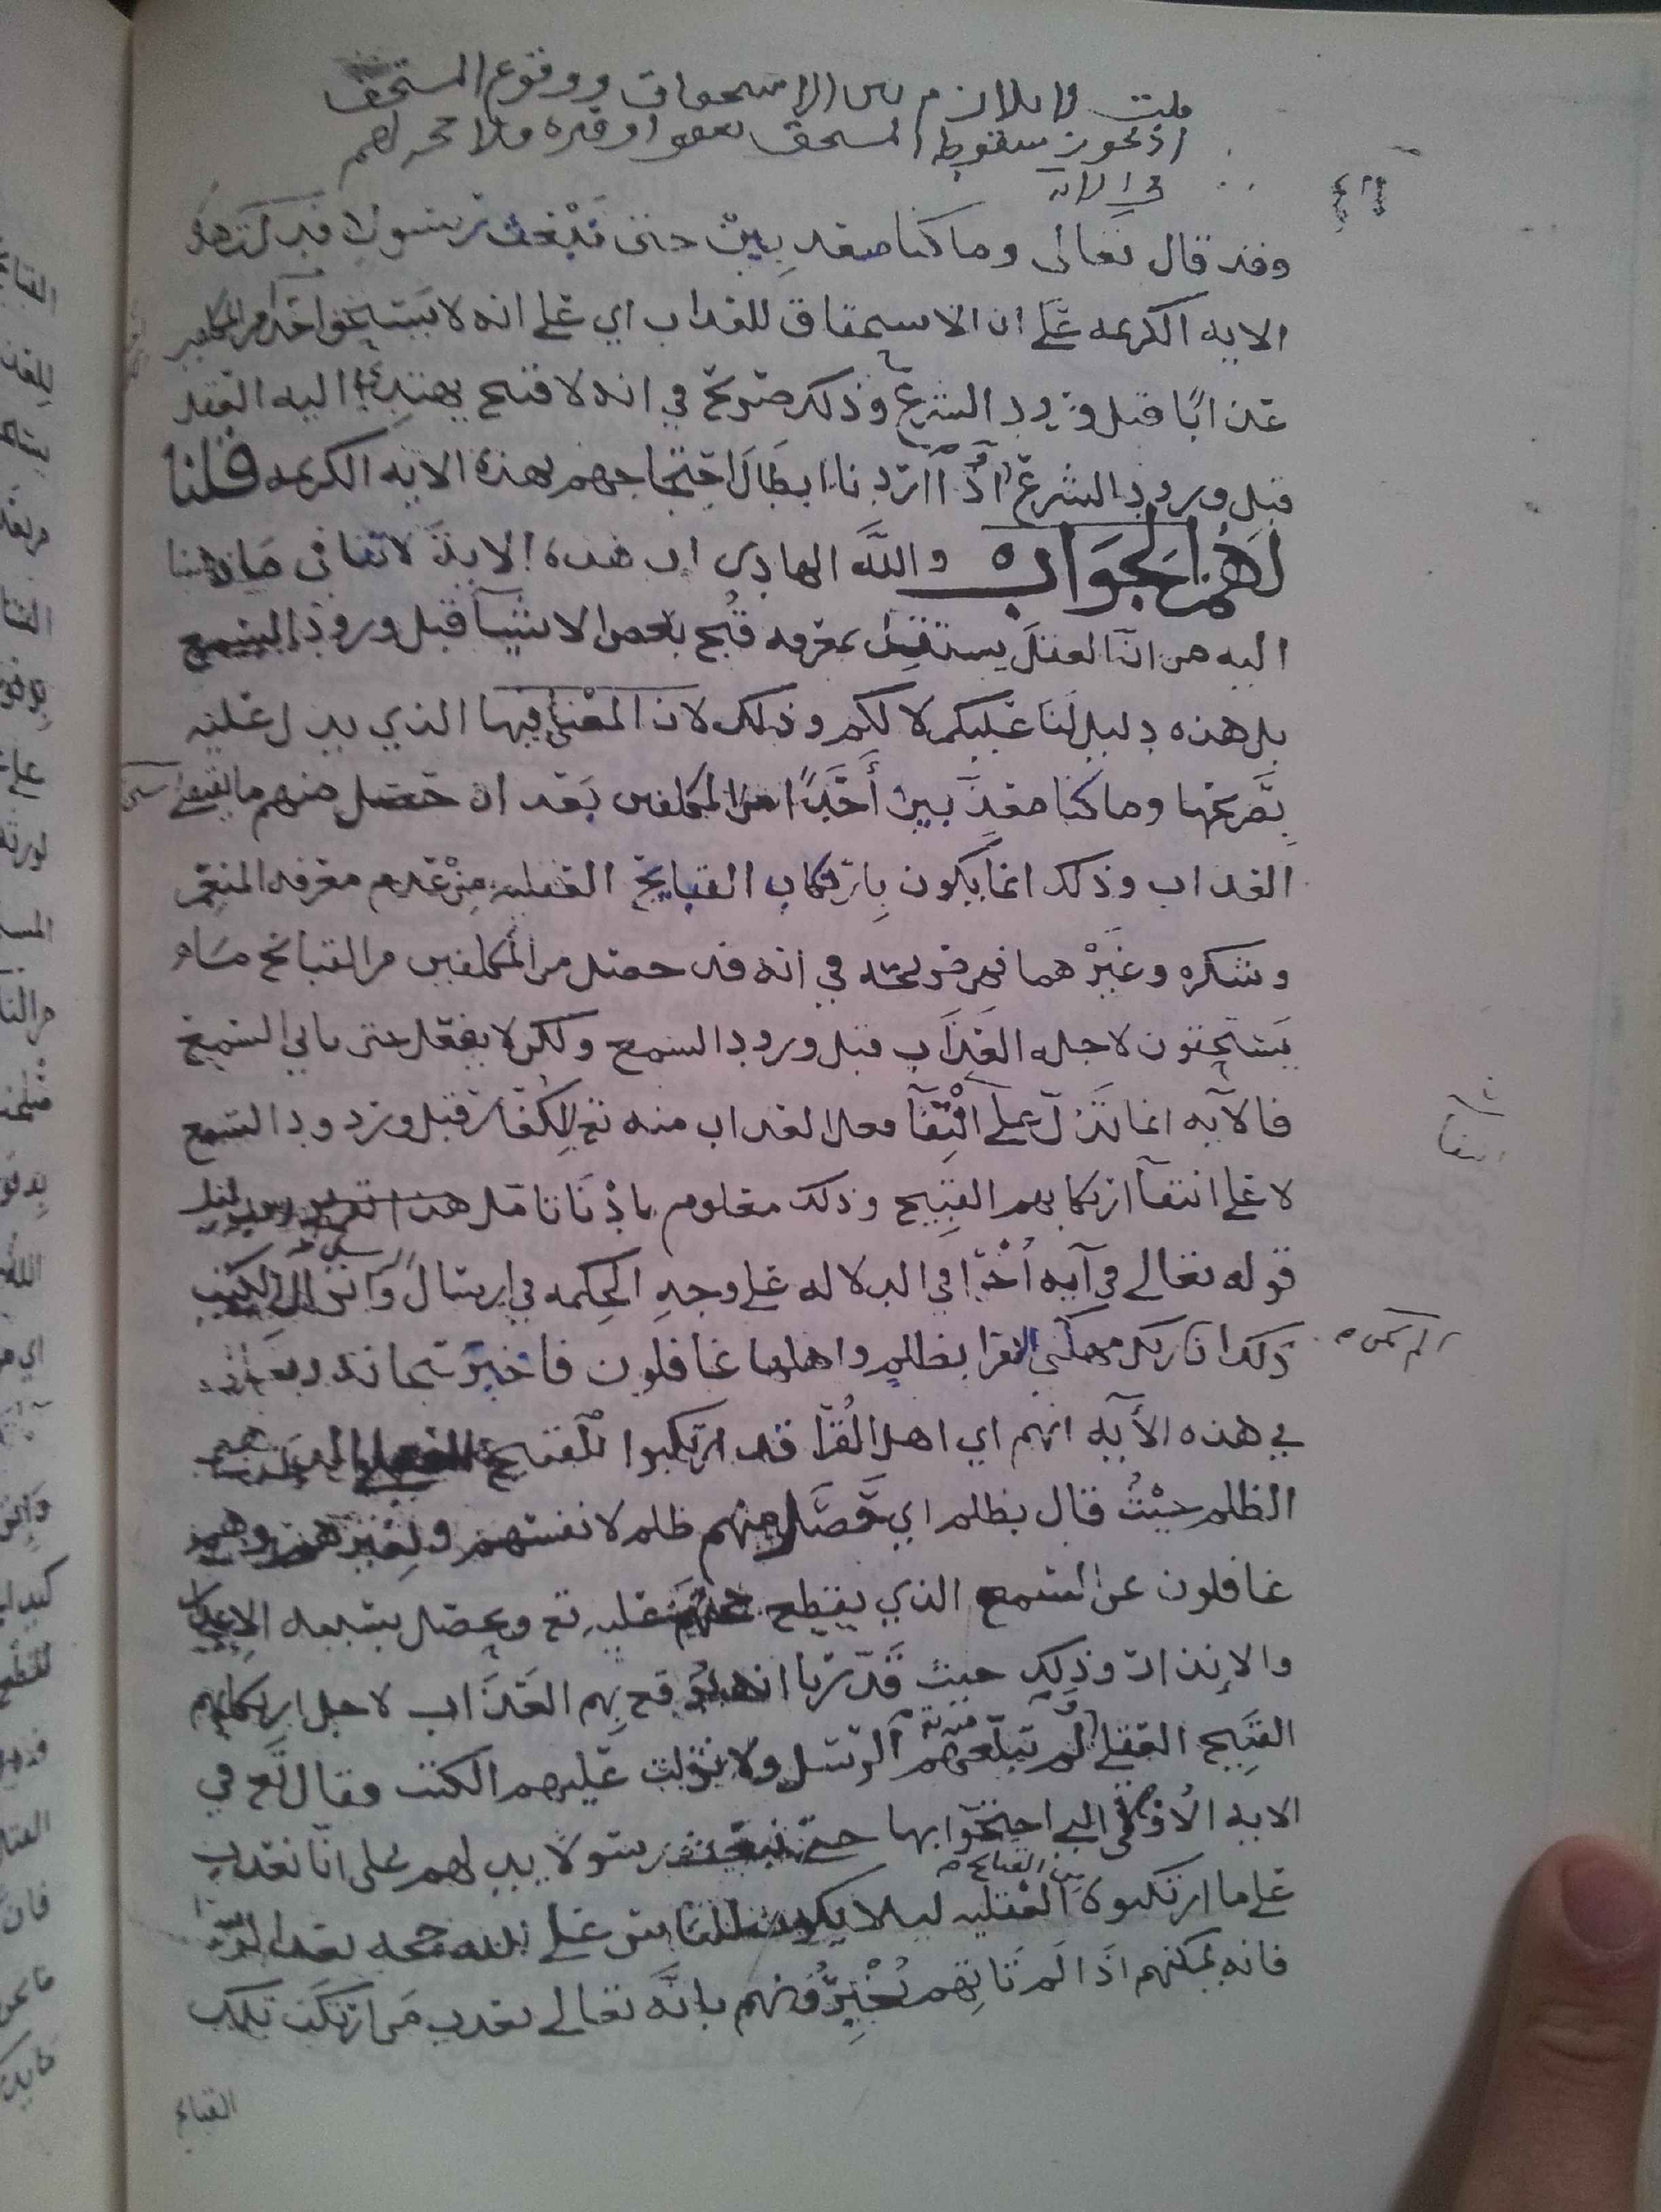 قلت ولا تلازم بين الاستحقاق ووقوع المستحق
اذ يجوز سقوط المستحق بعفو او غيره فلا حجه لهم
في الايه
وقد قال تعالى وما كنا معذبين حتى نبعث رسولا فدلت هذه
الايه الكريمه على ان الاستحقاق للعذاب اي على انه لا يستحق احد من المكلفين
عذابا قبل ورود الشرع وذلك صريح في انه لا قبح يهتدي اليه العقل
قبل ورود الشرع اذا اردنا ابطال احتجاجهم بهذه الايه الكريمه قلنا
لهم الجواب والله الهادي ان هذه الايه لا تنافي ما ذهبنا
اليه من ان العقل يستقل بمعرفه قبح بعض الاشيآ قبل ورود السمع
بل هذه دليل لنا عليكم لا لكم وذلك لان المعنى فيها الذي يدل عليه
تصريحها وما كنا معذبين أحدًا من المكلفين بعد ان حصل منهم ما يقتضي
العذاب وذلك انما يكون بارتكاب القبايح العقليه من عدم معرفه المنعم
وشكره وغيرهما فهي صريحه في انه قد حصل من المكلفين من القبائح ما
يستحقون لاجله العذاب قبل ورود السمع ولكن لا يفعل حتى ياتي السمع
فالآيه انما تدل على انتفآ فعل العذاب منه تع للكفار قبل ورود السمع
لا على انتفآ ارتكابهم القبيح وذلك معلوم بادنا تامل
قوله تعالى في آيه أخرا في الدلاله على وجه الحكمه في ارسال الرسل وانزال الكتب
ذلك ان لم يكن ربك مهلك القرا بظلم واهلها غافلون فاخبر سبحانه وتعالى
في هذه الأيه انهم اي اهل القرآ قد ارتكبوا القبيح
الظلم حيث قال بظلم اي حصل منهم ظلم لانفسهم ولغيرهم وهم
غافلون عن السمع الذي يقطع حجتهم عليه تع ويحصل بسببه الاعذار
والانذار وذلك حيث قدرنا انه يوقع بهم العذاب لاجل ارتكابهم
القبيح العقلي ولم تبلغهم الرسل ولا نزلت عليهم الكتب وقال تع في
الايه الأولى التي احتجوا بها حتى نبعث رسولا يدلهم على انا نعذب
على ما ارتكبوه من القبائح العقليه ليلا يكون للناس على الله حجه بعد الرسل
فانه يمكنهم اذا لم تاتهم رسل يخبرونهم بانه تعالى يعذب من ارتكب تلك
القبائح